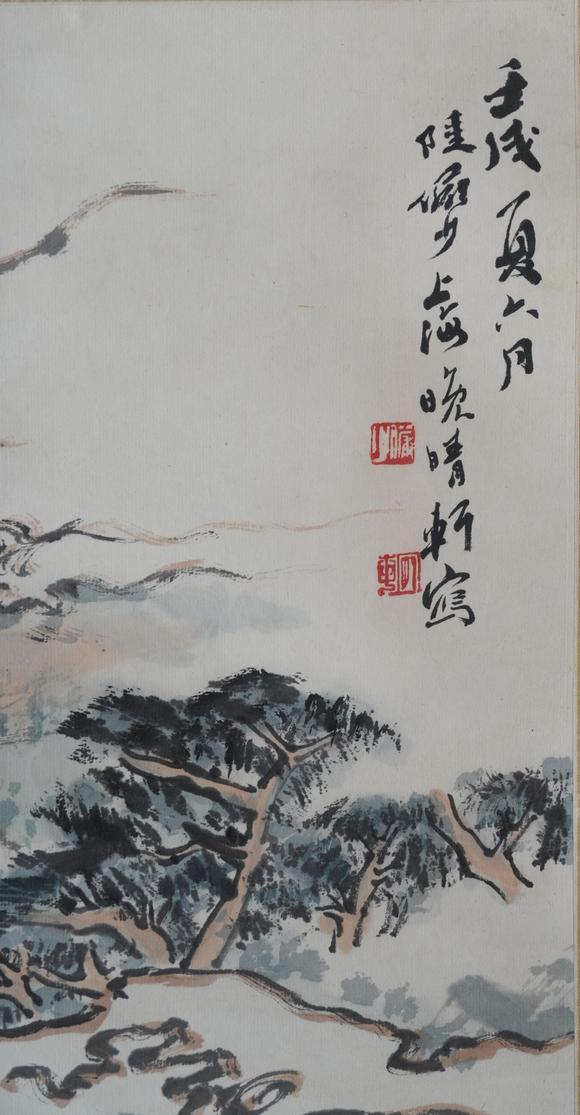 壬戌夏六月
陸儼少上海晚晴軒寫